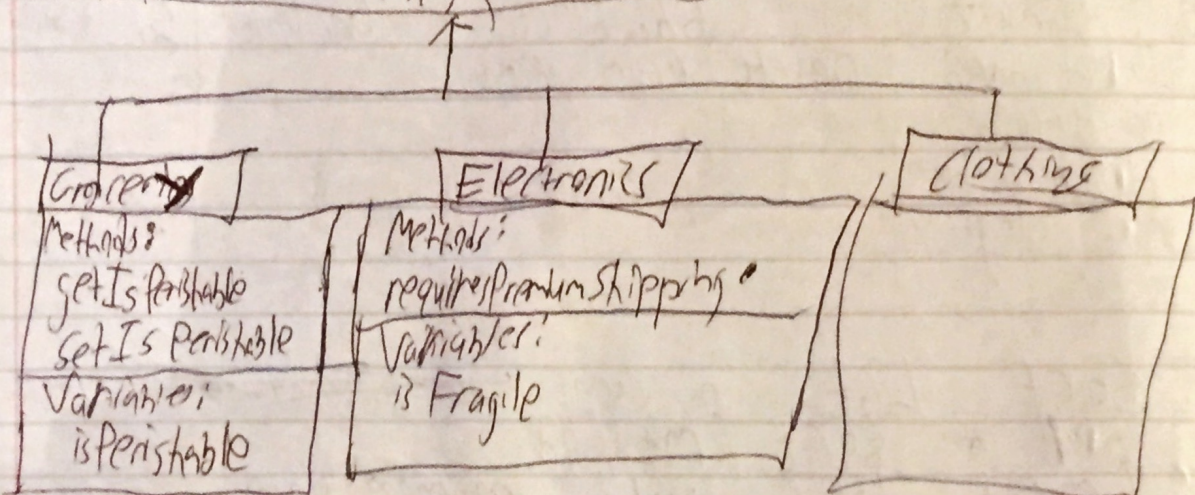 Grocery
Methods:
getIsPerishable
setIsPerishable
Variables:
isPerishable
Electronics
Methods:
requiresPremiumShipping
Variables:
isFragile
Clothing